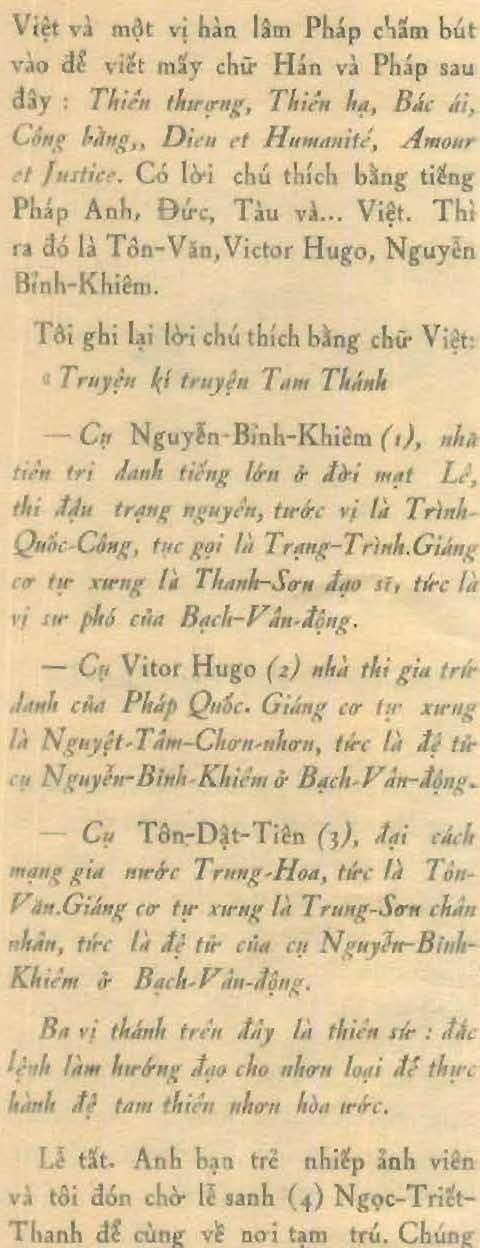 Việt và một vị hàn lâm Pháp chấm bút
vào để viết mấy chữ Hán và Pháp sau
đây : Thiên thượng, Thiên hạ, Bác ái,
Công bằng,, Dieu et Humanité, Amour
et Justice. Có lời chú thích bằng tiếng
Pháp Anh, Đức, Tàu và... Việt. Thì
ra đó là Tôn-Văn,Victor Hugo, Nguyễn
Bỉnh-Khiêm.
Tôi ghi lại lời chú thích bằng chữ Việt:
« Truyện kí truyện Tam Thánh
— Cụ Nguyễn-Bỉnh-Khiêm (1), nhà
tiên tri danh tiếng lớn ở đời mạt Lê,
thi đậu trạng nguyên, tước vị là Trình-
Quốc-Công, tục gọi là Trạng-Trình.Giáng
cơ tự xưng là Thanh-Sơn đạo sĩ, tức là
vị sư phó của Bạch-Vân-động.
— Cụ Vitor Hugo (2) nhà thi gia trứ
danh của Pháp Quốc. Giáng cơ tự xưng
là Nguyệt-Tâm-Chơn-nhơn, tức là đệ tử
cụ Nguyễn-Bỉnh-Khiêm ở Bạch-Vân-động.
— Cụ Tôn-Dật-Tiên (3), đại cách
mạng gia nước Trung-Hoa, tức là Tôn-
Văn.Giáng cơ tự xưng là Trung-Sơn chân
nhân, tức là đệ tử của cụ Nguyễn-Bỉnh-
Khiêm ở Bạch-Vân-động.
Ba vị thánh trên đây là thiên sứ : đắc
lệnh làm hướng đạo cho nhơn loại để thực
hành đệ tam thiên nhơn hòa ước.
Lễ tất. Anh bạn trẻ nhiếp ảnh viên
và tôi đón chờ lễ sanh (4) Ngọc-Triết-
Thanh để cùng về nơi tạm trú. Chúng